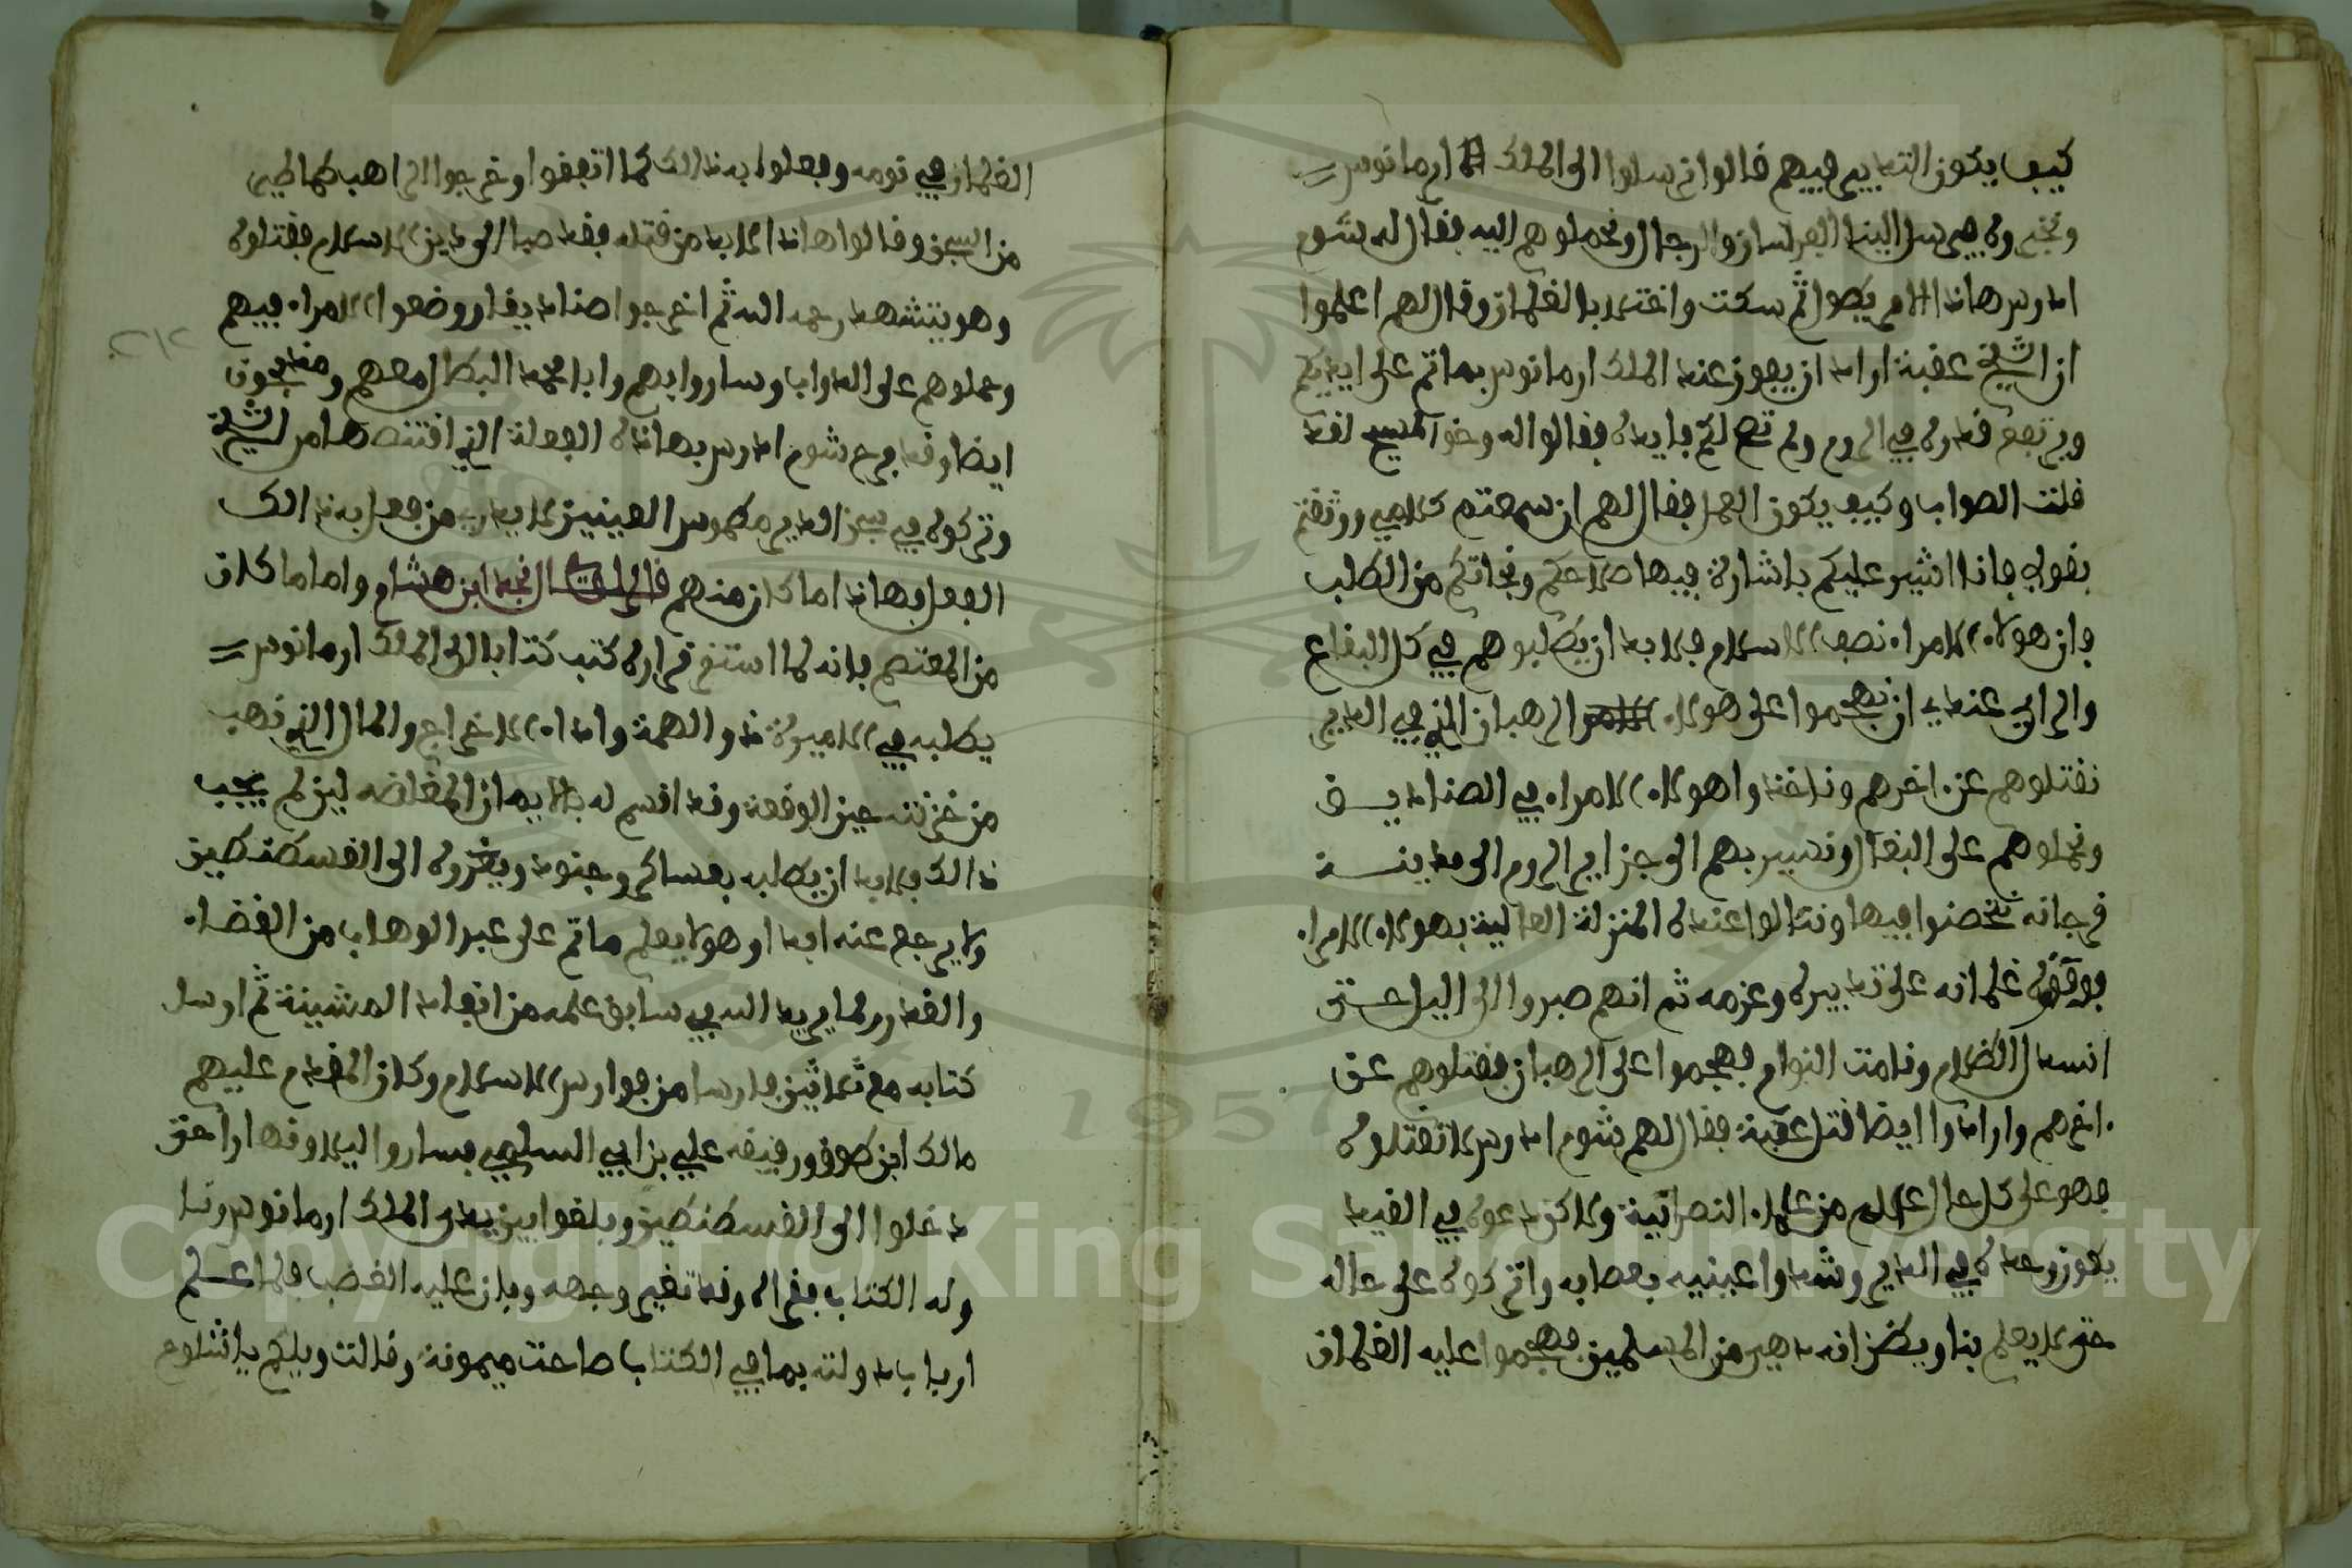 كيف يكون التدبير فيهم قالوا نرسلوا الى الملك ارمانوس
ونخبروه يرسل الينا الفرسان والرجال ونحملوهم اليه فقال له شوم
ادرس هاذا الامر يطول ثم سكت واختلا بالغلمان وقال لهم اعلموا
ان الشيخ عقبة اراد ان يفوز عند الملك ارمانوس بما تم على ايديكم
ويرتفع قدره في الروم ولم تصح لكم فايده فقالوا له وحق المسيح لقد
قلت الصواب وكيف يكون العمل فقال لهم ان سمعتم كلامي ووثقتم
بقولي فانا اشير عليكم باشارة فيها صلاحكم ونجاتكم من الطلب
فان هولاء الامراء نصف الاسلام فلا بد ان يطلبوهم في كل البقاع
والراي عندي ان نهجموا على هولاء الرهبان الذي في الدير
نقتلوهم عن اخرهم وناخذوا هولاء الامراء في الصناديـق
ونحملوهم على البغال ونسير بهم الى جزاير الروم الى مدينـة
فرجانه نتحصنوا فيها وننالوا عنده المنزلة العالية بهولاء الامراء
فوافقوه غلمانه على تدبيره وعزمه ثم انهم صبروا الى الليل حتى
انسدل الظلام ونامت النوام فهجموا على الرهبان فقتلوهم عن
اخرهم وارادوا ايضا قتل عقبة فقال لهم شوم ادرس لا تقتلوه
فهو على كل حال عالم من علماء النصرانية ولاكن دعوه في القيد
يكون وحده في الدير وشدوا عينيه بعصابه واتركوه على حاله
حتى لا يعلم بنا ويظن انه دهي من المسلمين فهجموا عليه الغلمان
الغلمان في نومه وفعلوا به ذالك كما اتفقوا وخرجوا الراهب كماطير
من السجن وقالوا هاذا لا بد من قتله فقد صبا الى دين الاسلام فقتلوه
وهو يتشهد رحمه الله ثم اخرجوا صناديق ووضعوا الامراء فيهم
وحملوهم على الدواب وساروا بهم وابا محمد البطال معهم ومقدمون
ايضا وقد فرح شوم ادرس بهاذه الفعلة الذي اقتنصها من الشيخ
وتركوه في سجن الدير مطموس العينين لا يدري من فعل به ذالك
الفعل فهاذا ما كان منهم قال الراوي نجد ابن هشام واما ما كان
من المعتصم فانه لما استقر قراره كتب كتابا الى الملك ارمانوس
يطلبه في الاميرة ذو الهمة واداء الاخراج والمال الذي ذهب
من خزنته حين الوقعة وقد اقسم له بالايمان المغلضه لين لم يجب
ذالك فلا بد ان يطلبه بعساكر وجنود ويغزوه الى القسطنطين
ولا يرجع عنه ابدا وهو لا يعلم ما تم على عبد الوهاب من القضاء
والقدر لما يريد الله في سابق علمه من انفاذ المشيئة ثم ارسل
كتابه مع ثلاثين فارسا من فوارس الاسلام وكان المقدم عليهم
مالك ابن طوق ورفيقه علي بن ابي السلمي فساروا ليلا ونهارا حتى
دخلوا الى القسطنطين وبلغوا بين يدي الملك ارمانوس ونا
وله الكتاب فقراه وقد تغير وجهه وبان عليه الغضب فلما علـم
ارباب دولته بما في الكتاب صاحت ميمونة وقالت ويلكم يا شلوح